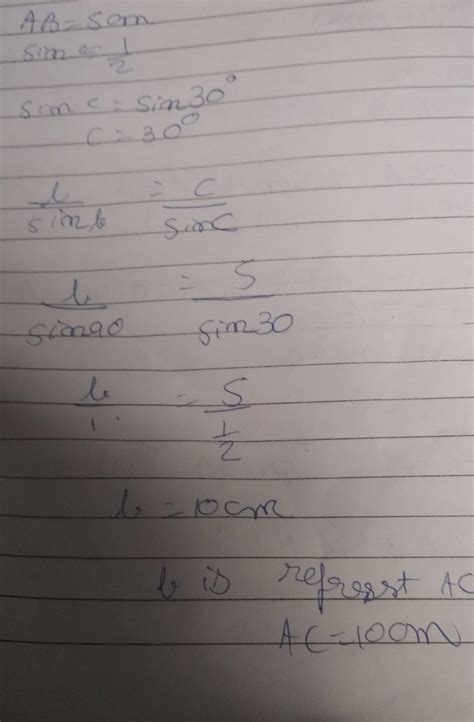 AB = 5cm
sin c = 1/2
sin c = sin30°
c = 30°
b/sin b = c/sin C
b/sin90 = 5/sin30
b/1 = 5/(1/2)
b = 10cm
b is represst AC
AC = 10cm